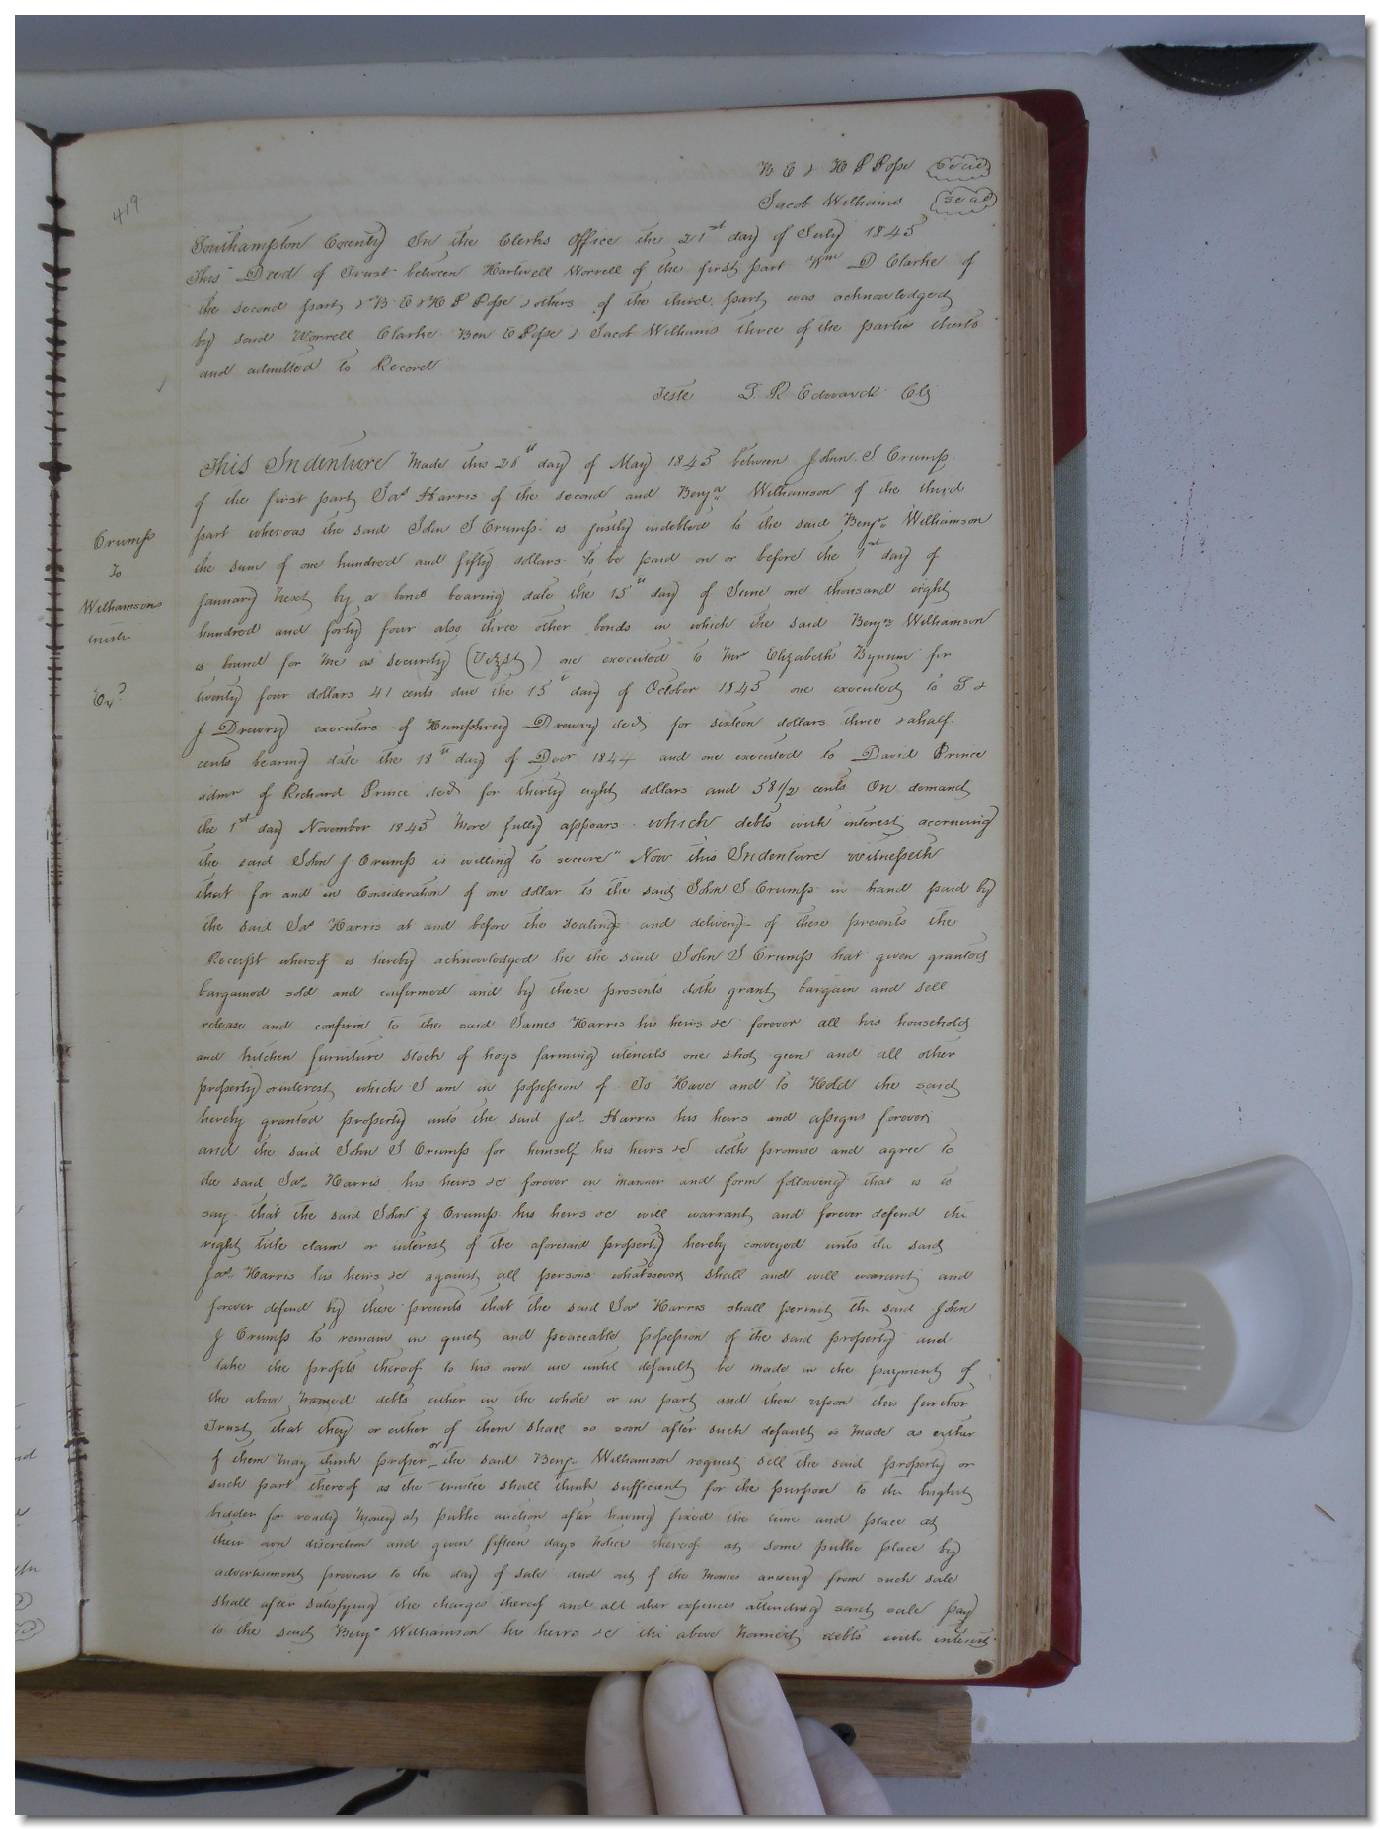 419
B E & H P Pope Seal
Jacob Williams Seal
Southampton County In the Clerks Office the 21st day of July 1845
This Deed of Trust between Hartwell Worrell of the first part Wm D Clarke of
the second party & B E & H P Pope & others of the third part was acknowledged
by said Worrell Clarke Ben E Pope & Jacob Williams three of the parties thereto
and admitted to Record
Teste L. R Edwards Clk
This Indenture Made this 28th day of May 1845 between John S Crump
of the first part Jas Harris of the second and Benja Williamson of the third
part whereas the said John S Crump is justly indebted to the said Benja Williamson
the sum of one hundred and fifty dollars to be paid on or before the 1st day of
January next by a bond bearing date the 15th day of June one thousand eight
hundred and forty four also three other bonds in which the said Benja Williamson
is bound for me as security (Vizst) one executed to Mrs Elizabeth Bynum for
twenty four dollars 41 cents due the 15th day of October 1845 one executed to T &
J Drewry executors of Humphrey Drewry decd for sixteen dollars three & a half
cents bearing date the 18th day of Decr 1844 and one executed to David Prince
admr of Richard Prince decd for thirty eight dollars and 58 1/2 cents On demand
the 1st day November 1845 More fully appears which debts with interest accrueing
the said John J Crump is willing to secure" Now this Indenture witnesseth
that for and in Consideration of one dollar to the said John S Crump in hand paid by
the said Jas Harris at and before the sealing and delivery of these presents the
Receipt whereof is hereby acknowledged he the said John S Crump hat given granted
bargained sold and confirmed and by these presents doth grant bargain and sell
release and confirm to the said James Harris his heirs &c forever all his household
and kitchen furniture stock of hogs farming utencils one shot gun and all other
property or interest which I am in possession of To Have and to Hold the said
hereby granted property unto the said Jas Harris his heirs and assigns forever
and the said John S Crump for himself his heirs &c doth promise and agree to
the said Jas Harris his heirs &c forever in manner and form following that is to
say that the said John J Crump his heirs &c will warrant and forever defend the
right title claim or interest of the aforesaid property hereby conveyed unto the said
Jas Harris his heirs &c against all persons whatsoever shall and will warrant and
forever defend by these presents that the said Jas Harris shall permit the said John
J Crump to remain in quiet and peaceable possession of the said property and
take the profits thereof to his own use until default be made in the payment of
the above named debts either in the whole or in part and then upon this further
Trust that they or either of them shall so soon after such default is made as either
of them may think proper or the said Benja Williamson request sell the said property or
such part thereof as the trustee shall think sufficient for the purpose to the highest
bidder for ready money at public auction after having fixed the time and place at
their own discretion and given fifteen days notice thereof at some public place by
advertisement previous to the day of sale and out of the monies arising from such sale
shall after satisfying the charges thereof and all other expences attending said sale pay
to the said Benja Williamson his heirs &c the above named debts with interest
Crump
To
Williamsons
truste
Ex?